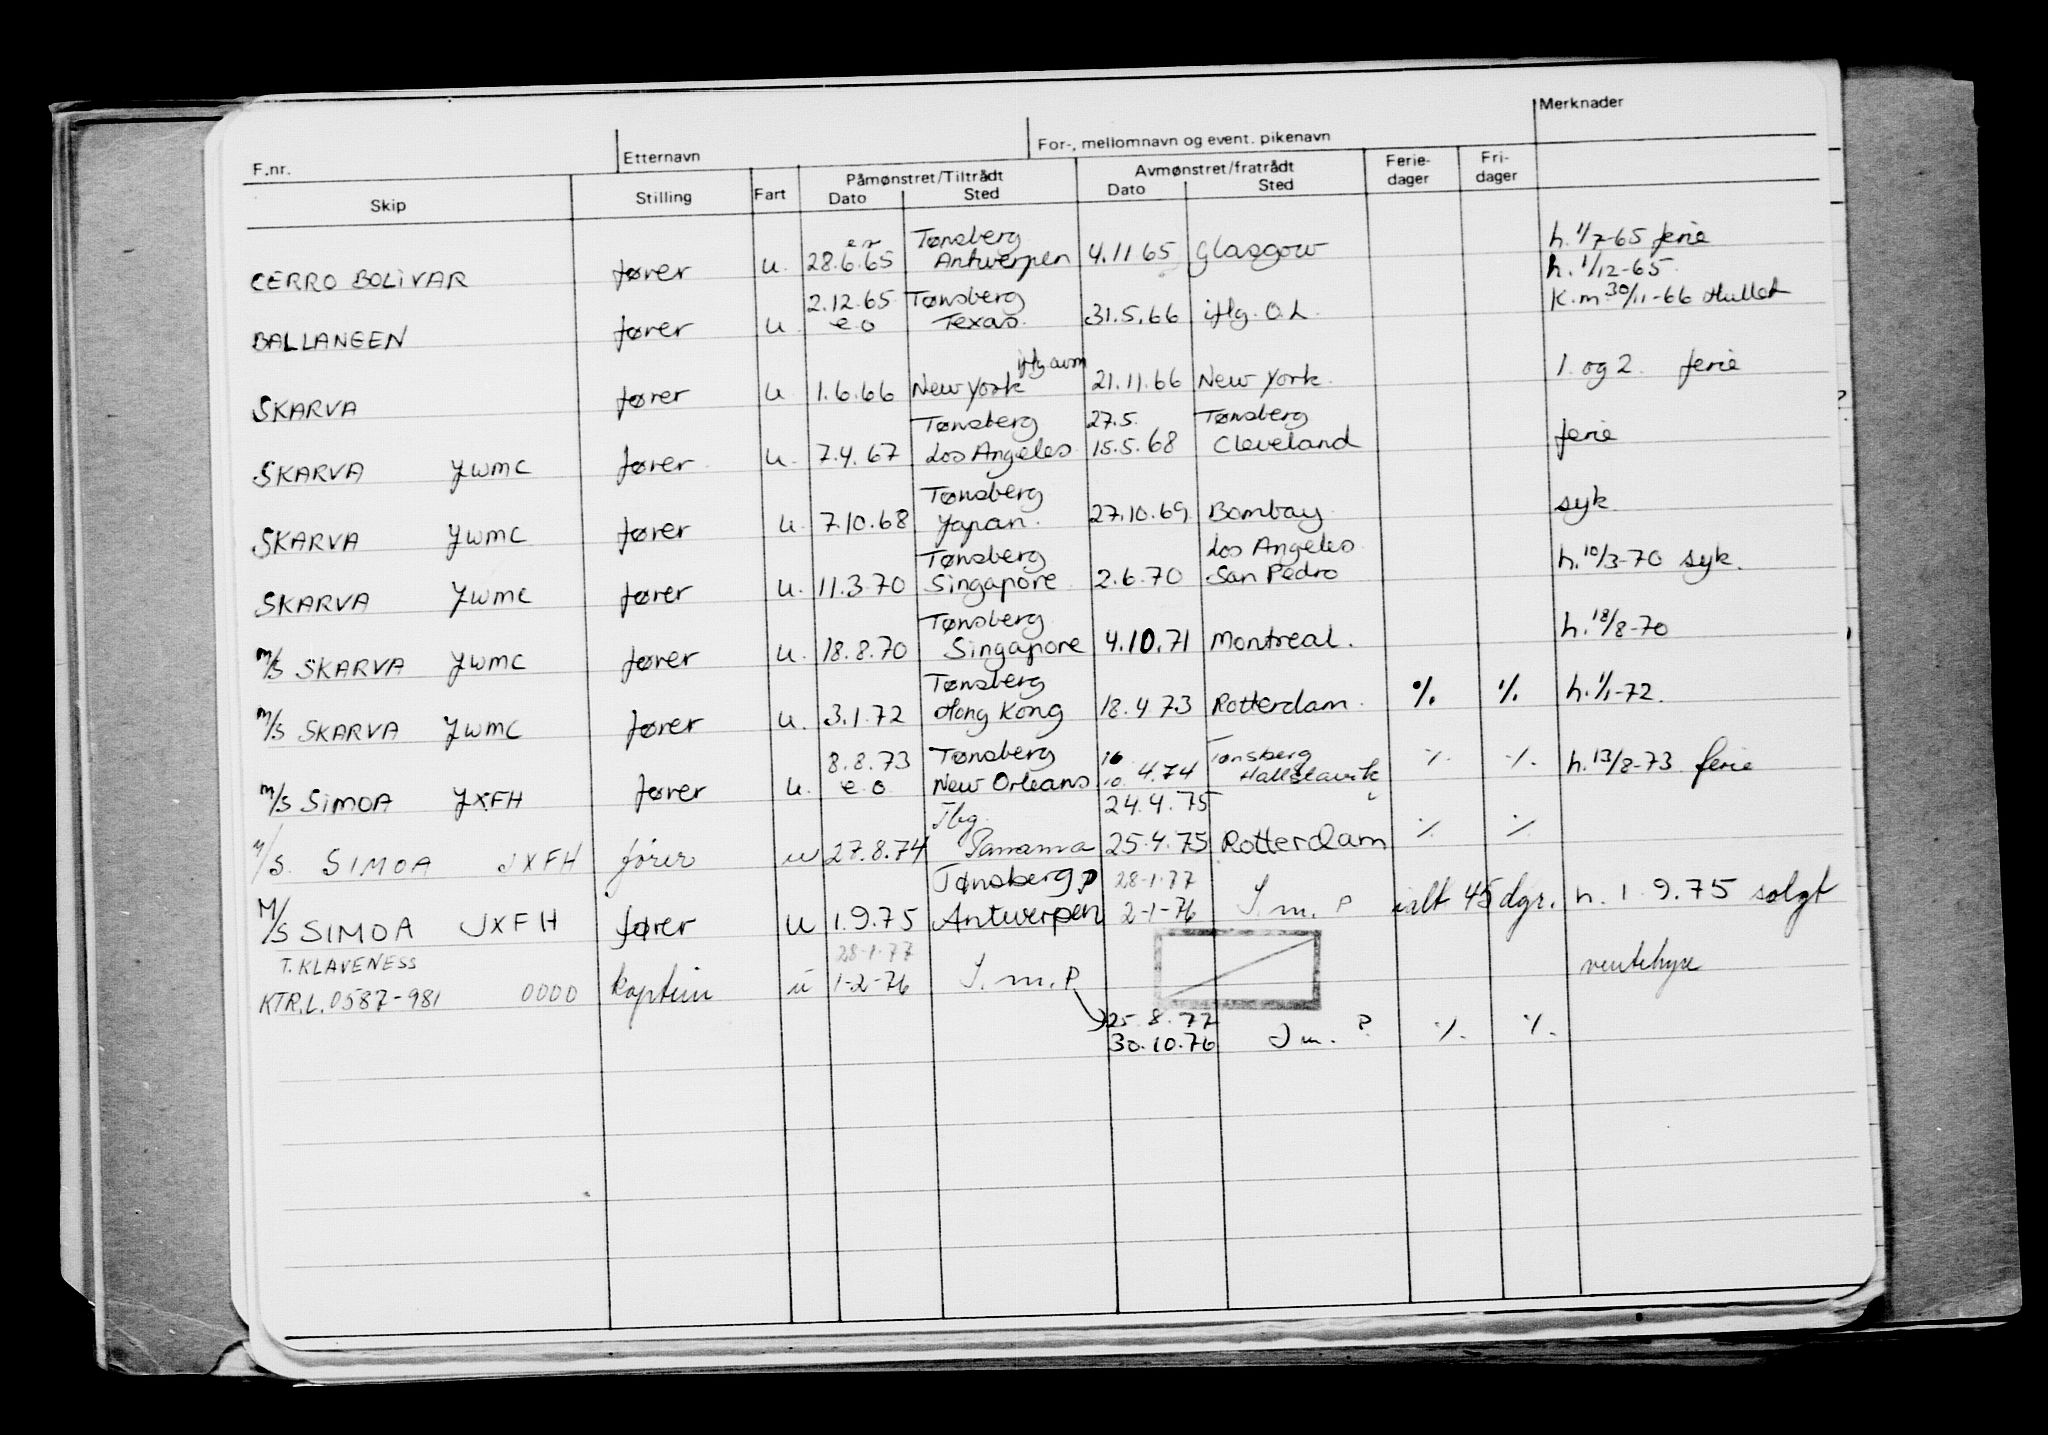 F.nr. Etternavn For-, mellomnavn og event. pikenavn Merknader
Skip Stilling Fart Påmønstret/Tiltrådt Dato Sted Avmønstret/fratrådt Dato Sted Ferie-dager Fri-dager
Tønsberg h. 1/7-65 ferie
CERRO BOLIVAR fører u. 28.6.65 Antwerpen 4.11 65 Glasgow h. 1/12-65
2.12.65 Tønsberg K.m 30/11-66
BALLANGEN fører u e.o Texas. 31.5.66 iflg. O.L.
iflg avm
SKARVA fører u 1.6.66 New York 21.11.66 New York. 1. og 2. ferie
Tønsberg 27.5. Tønsberg
SKARVA JWMC fører u. 7.4.67 Los Angeles 15.5.68 Cleveland ferie
Tønsberg
SKARVA JWMC fører u. 7.10.68 Japan. 27.10.69 Bombay syk.
Tønsberg Los Angeles
SKARVA JWMC fører u. 11.3.70 Singapore 2.6.70 San Pedro h. 10/3-70 syk.
Tønsberg
M/S SKARVA JWMC fører u. 18.8.70 Singapore 4.10.71 Montreal. h. 18/8-70
Tønsberg
M/S SKARVA JWMC fører u. 3.1.72 Hong Kong 18.4 73 Rotterdam. % % h. 1/1-72.
8.8.73 Tønsberg 16 Tønsberg
M/S SIMOA JXFH fører u. e.o New Orleans 10. 4.74 Hallstavik % % h. 13/8-73 ferie
Tbg. 24.4.75
M/S. SIMOA JXFH fører u 27.8.74 Panama 25.4.75 Rotterdam % %
Tønsberg 28-1-77
M/S SIMOA JXFH fører u 1.9.75 Antwerpen 2-1-76 I.m.P 45 dgr. h. 1.9.75 solgt
T. KLAVENESS 28-1-77
KTR.L. 0587-981 0000 kaptein u 1-2-76 I.m.P ventehyre
25.8.77
30.10.76 I m. P % %